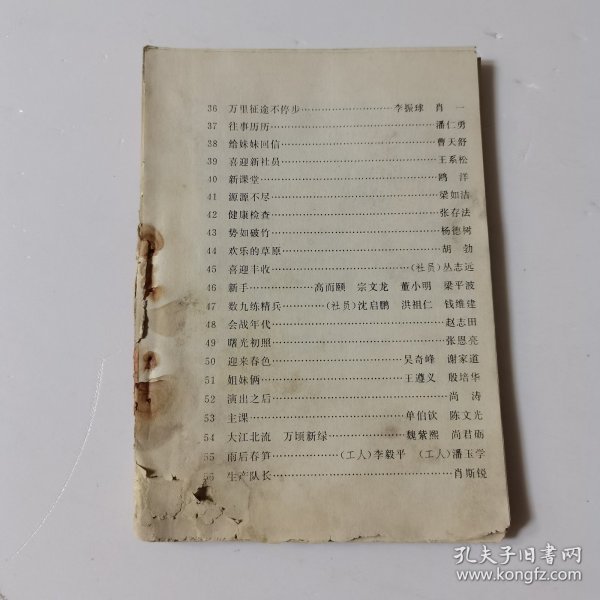 36 万里征途不停步……李振球 肖一
37 往事历历……潘仁勇
38 给妹妹回信……曹天舒
39 喜迎新社员……王系松
40 新课堂……鸥洋
41 源源不尽……梁如洁
42 健康检查……张存法
43 势如破竹……杨德树
44 欢乐的草原……胡勃
45 喜迎丰收……(社员)丛志远
46 新手……高而颐 宗文龙 董小明 梁平波
47 数九练精兵……(社员)沈启鹏 洪祖仁 钱维建
48 会战年代……赵志田
49 曙光初照……张恩亮
50 迎来春色……吴奇峰 谢家道
51 姐妹俩……王遵义 殷培华
52 演出之后……尚涛
53 主课……单伯钦 陈文光
54 大江北流 万顷新绿……魏紫熙 尚君砺
55 雨后春笋……(工人)李毅平 (工人)潘玉学
生产队长……肖斯锐
孔夫子旧书网
www.kongfz.com